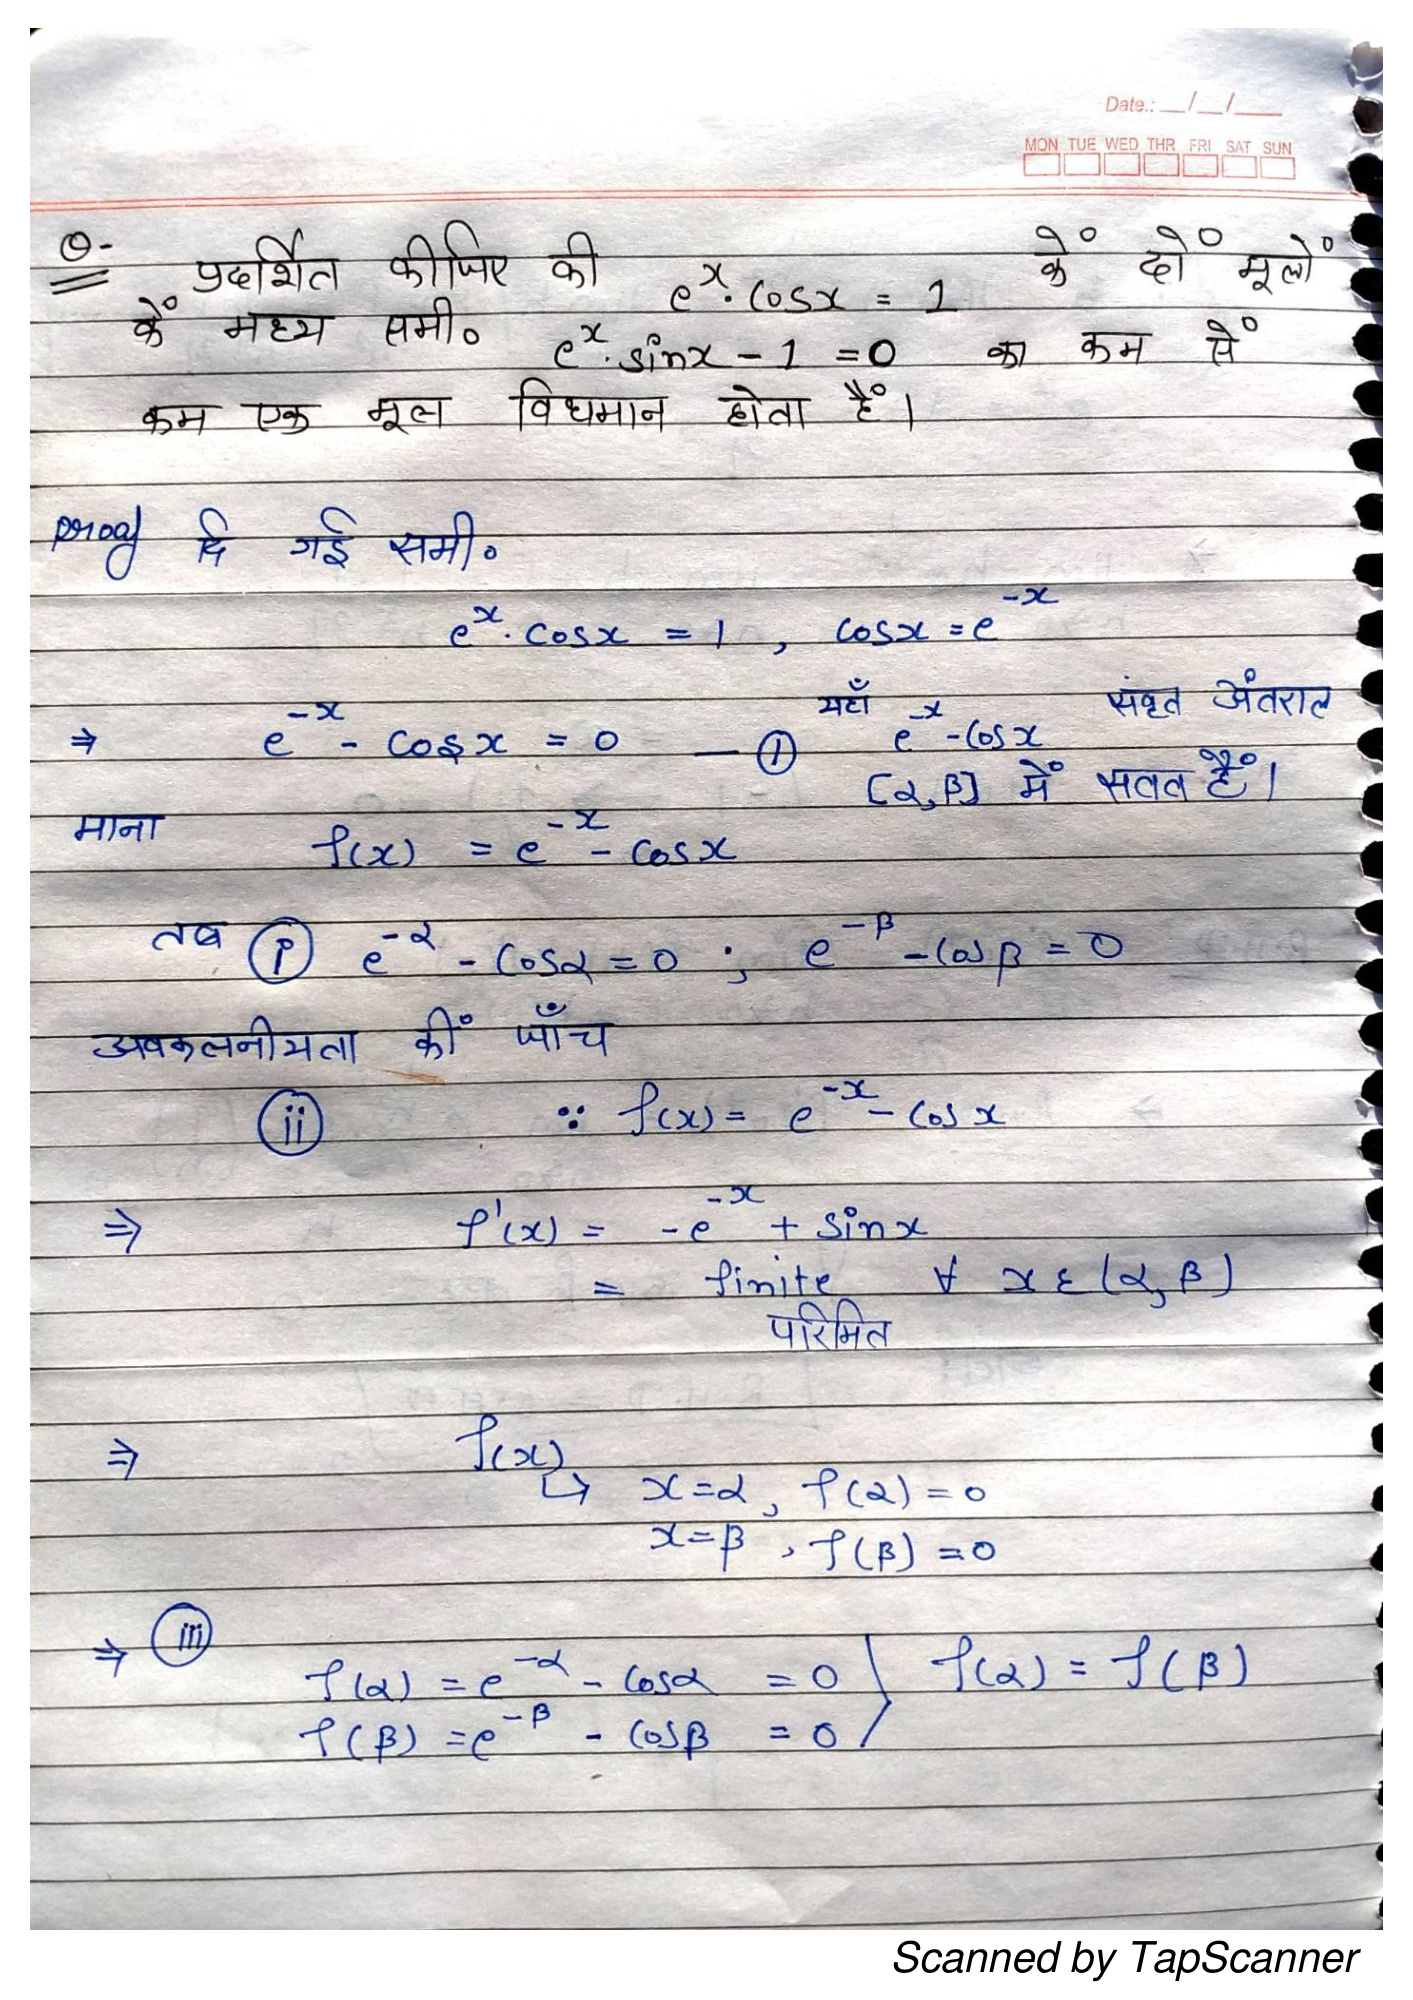 Date.: __/__/___
MON TUE WED THR FRI SAT SUN
Q- प्रदर्शित कीजिए की e^x. cosx = 1 कें दों मूलों
कें मध्य समी० e^x. sinx - 1 = 0 का कम सें
कम एक मूल विधमान होता हैं।
proof दि गई समी०
e^x. cosx = 1 , cosx = e^-x
⇒ e^-x - cosx = 0 — ① यहाँ e^-x - cosx संवृत अंतराल
[α,β] में सतत हैं।
माना f(x) = e^-x - cosx
तब (i) e^-α - cosα = 0 ; e^-β - cosβ = 0
अवकलनीयता कीं जाँच
(ii) ∵ f(x) = e^-x - cosx
⇒ f'(x) = -e^-x + sinx
= finite ∀ x ε (α, β)
परिमित
⇒ f(x)
↳ x=α, f(α) = 0
x=β , f(β) = 0
⇒ (iii)
f(α) = e^-α - cosα = 0 } f(α) = f(β)
f(β) = e^-β - cosβ = 0
Scanned by TapScanner